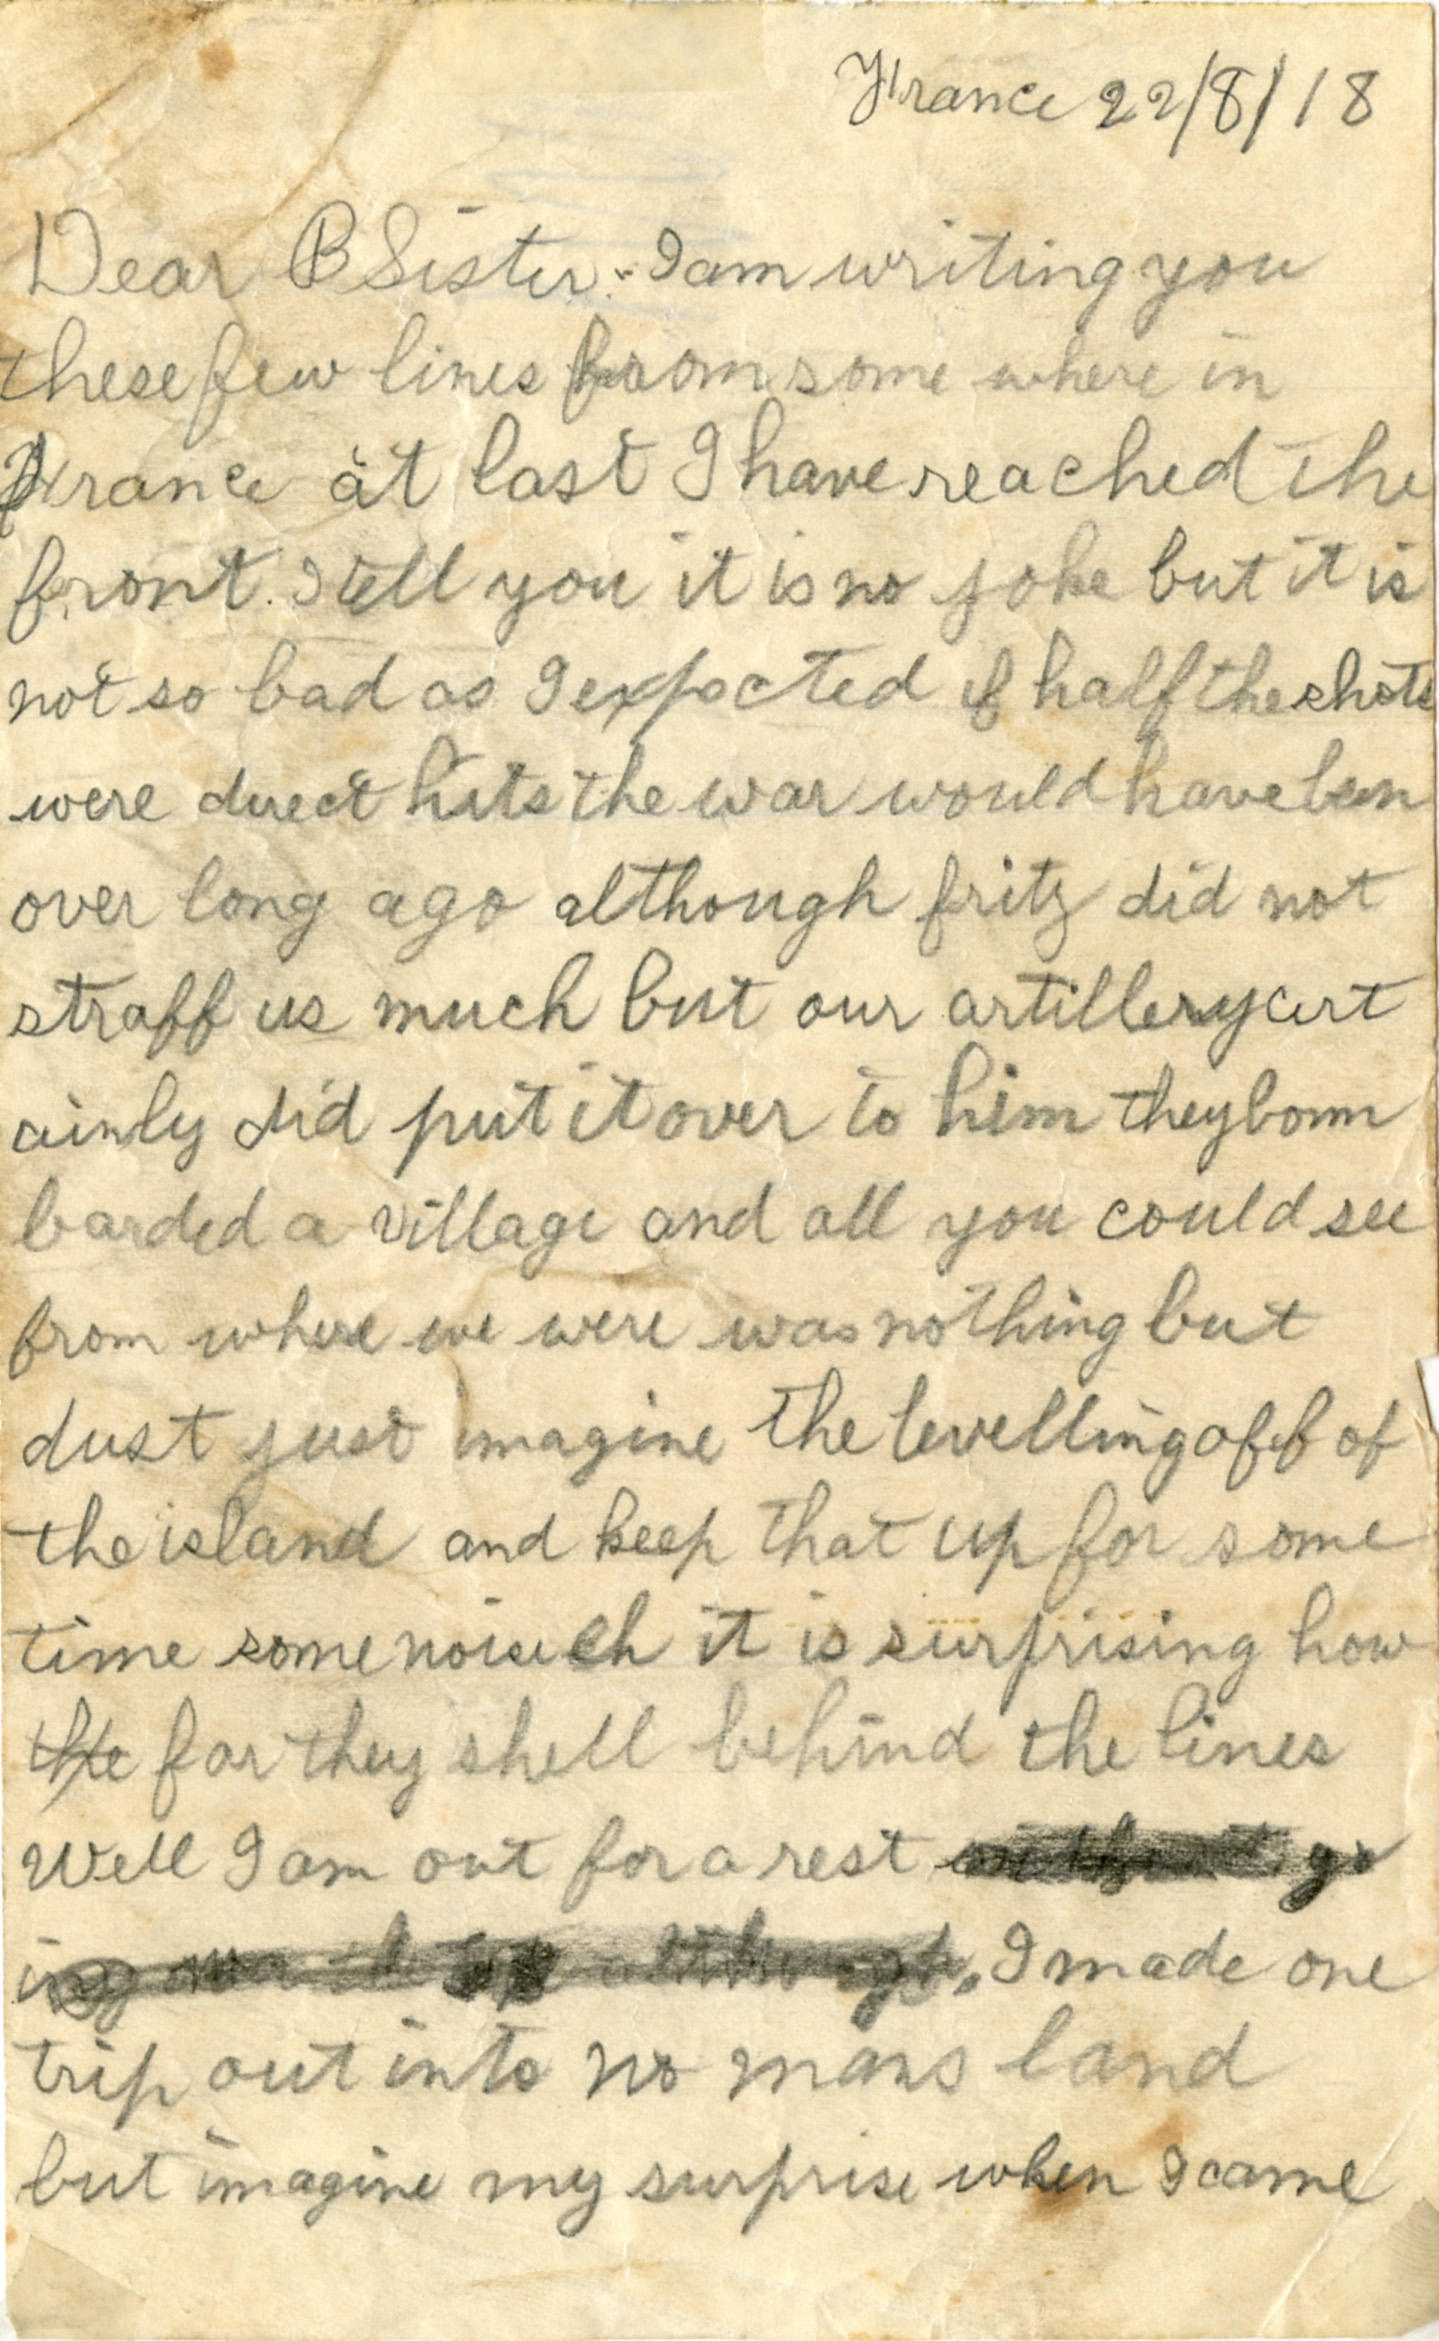 France 22/8/18
Dear B Sister:- I am writing you
these few lines from some where in
France at last I have reached the
front. I tell you it is no joke but it is
not so bad as I expected if half the shots
were direct hits the war would have been
over long ago although fritz did not
straff us much but our artillery cert
ainly did put it over to him they bom
barded a village and all you could see
from where we were was nothing but
dust just imagine the levelling off of
the island and keep that up for some
time some noise eh it is surprising how
the far they shell behind the lines
Well I am out for a rest
I made one
trip out into no mans land
but imagine my surprise when I came